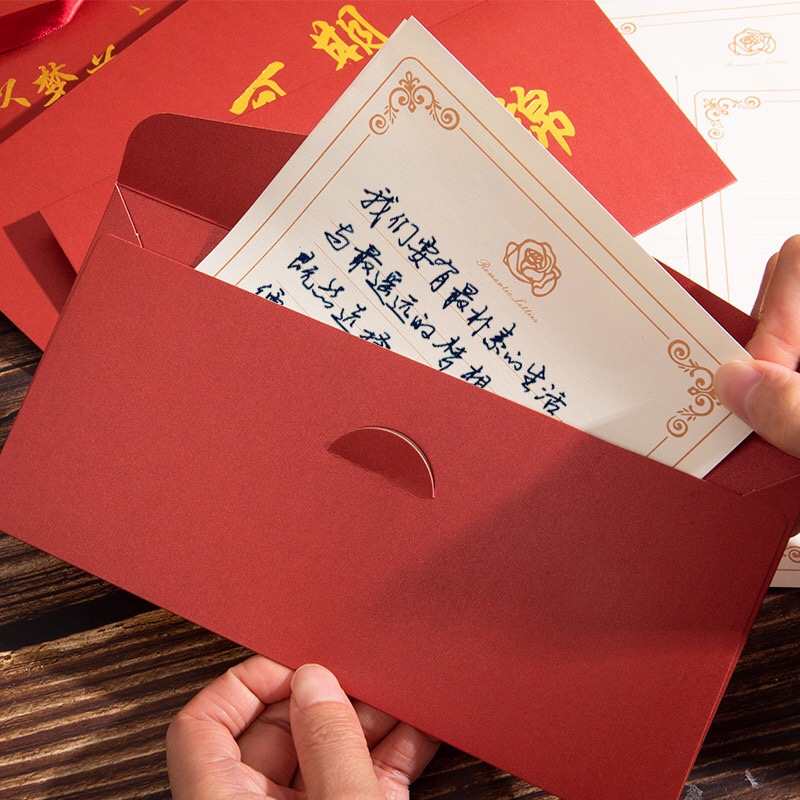 梦
可期
锦
Romantic Letters
我们要有最朴素的生活
与最遥远的梦想
既然选择